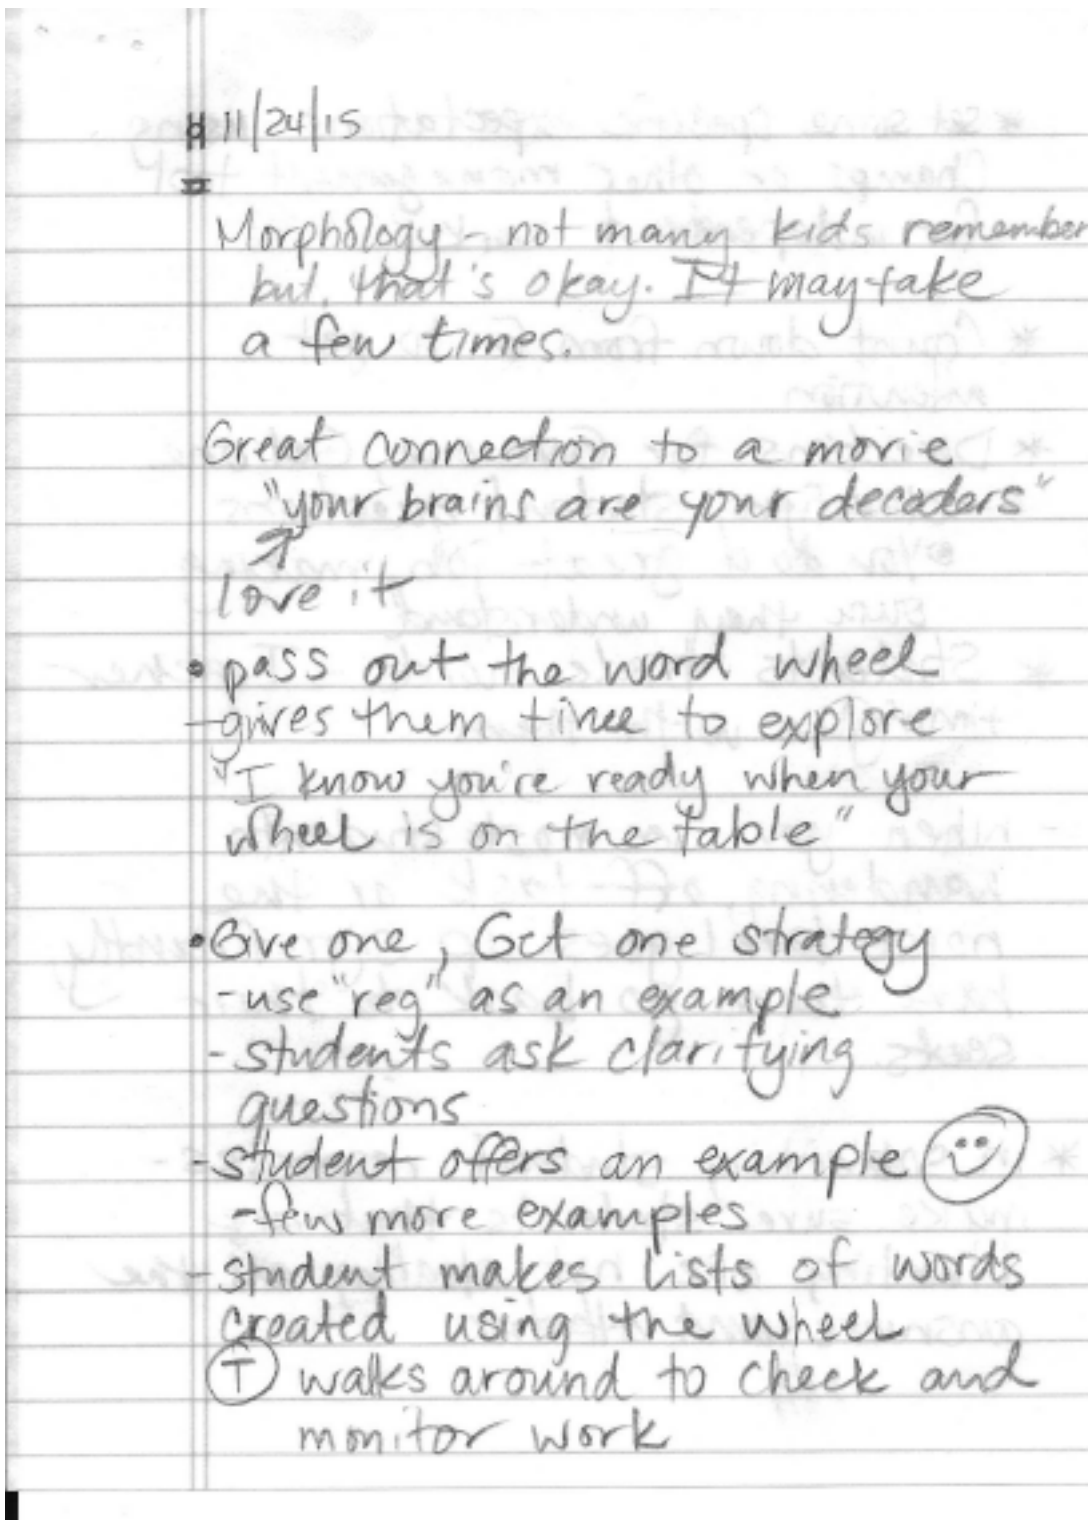 11/24/15
Morphology - not many kids remember
but that's okay. It may take
a few times.
Great connection to a movie
"your brains are your decoders"
love it
• pass out the word wheel
- gives them time to explore
"I know you're ready when your
wheel is on the table"
• Give one, Get one strategy
- use "reg" as an example
- students ask clarifying
questions
- student offers an example
- few more examples
- student makes lists of words
created using the wheel
T walks around to check and
monitor work